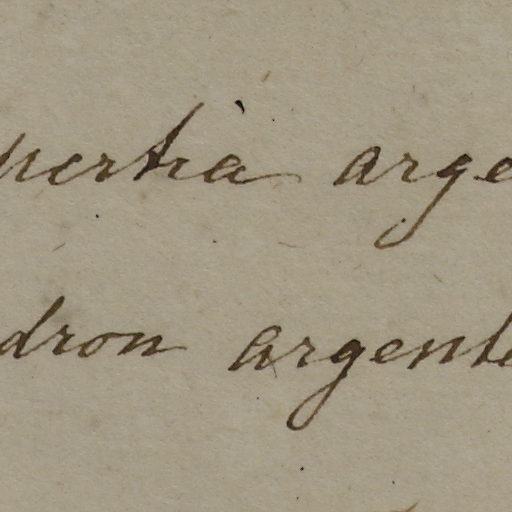 pertia arge
dron argente